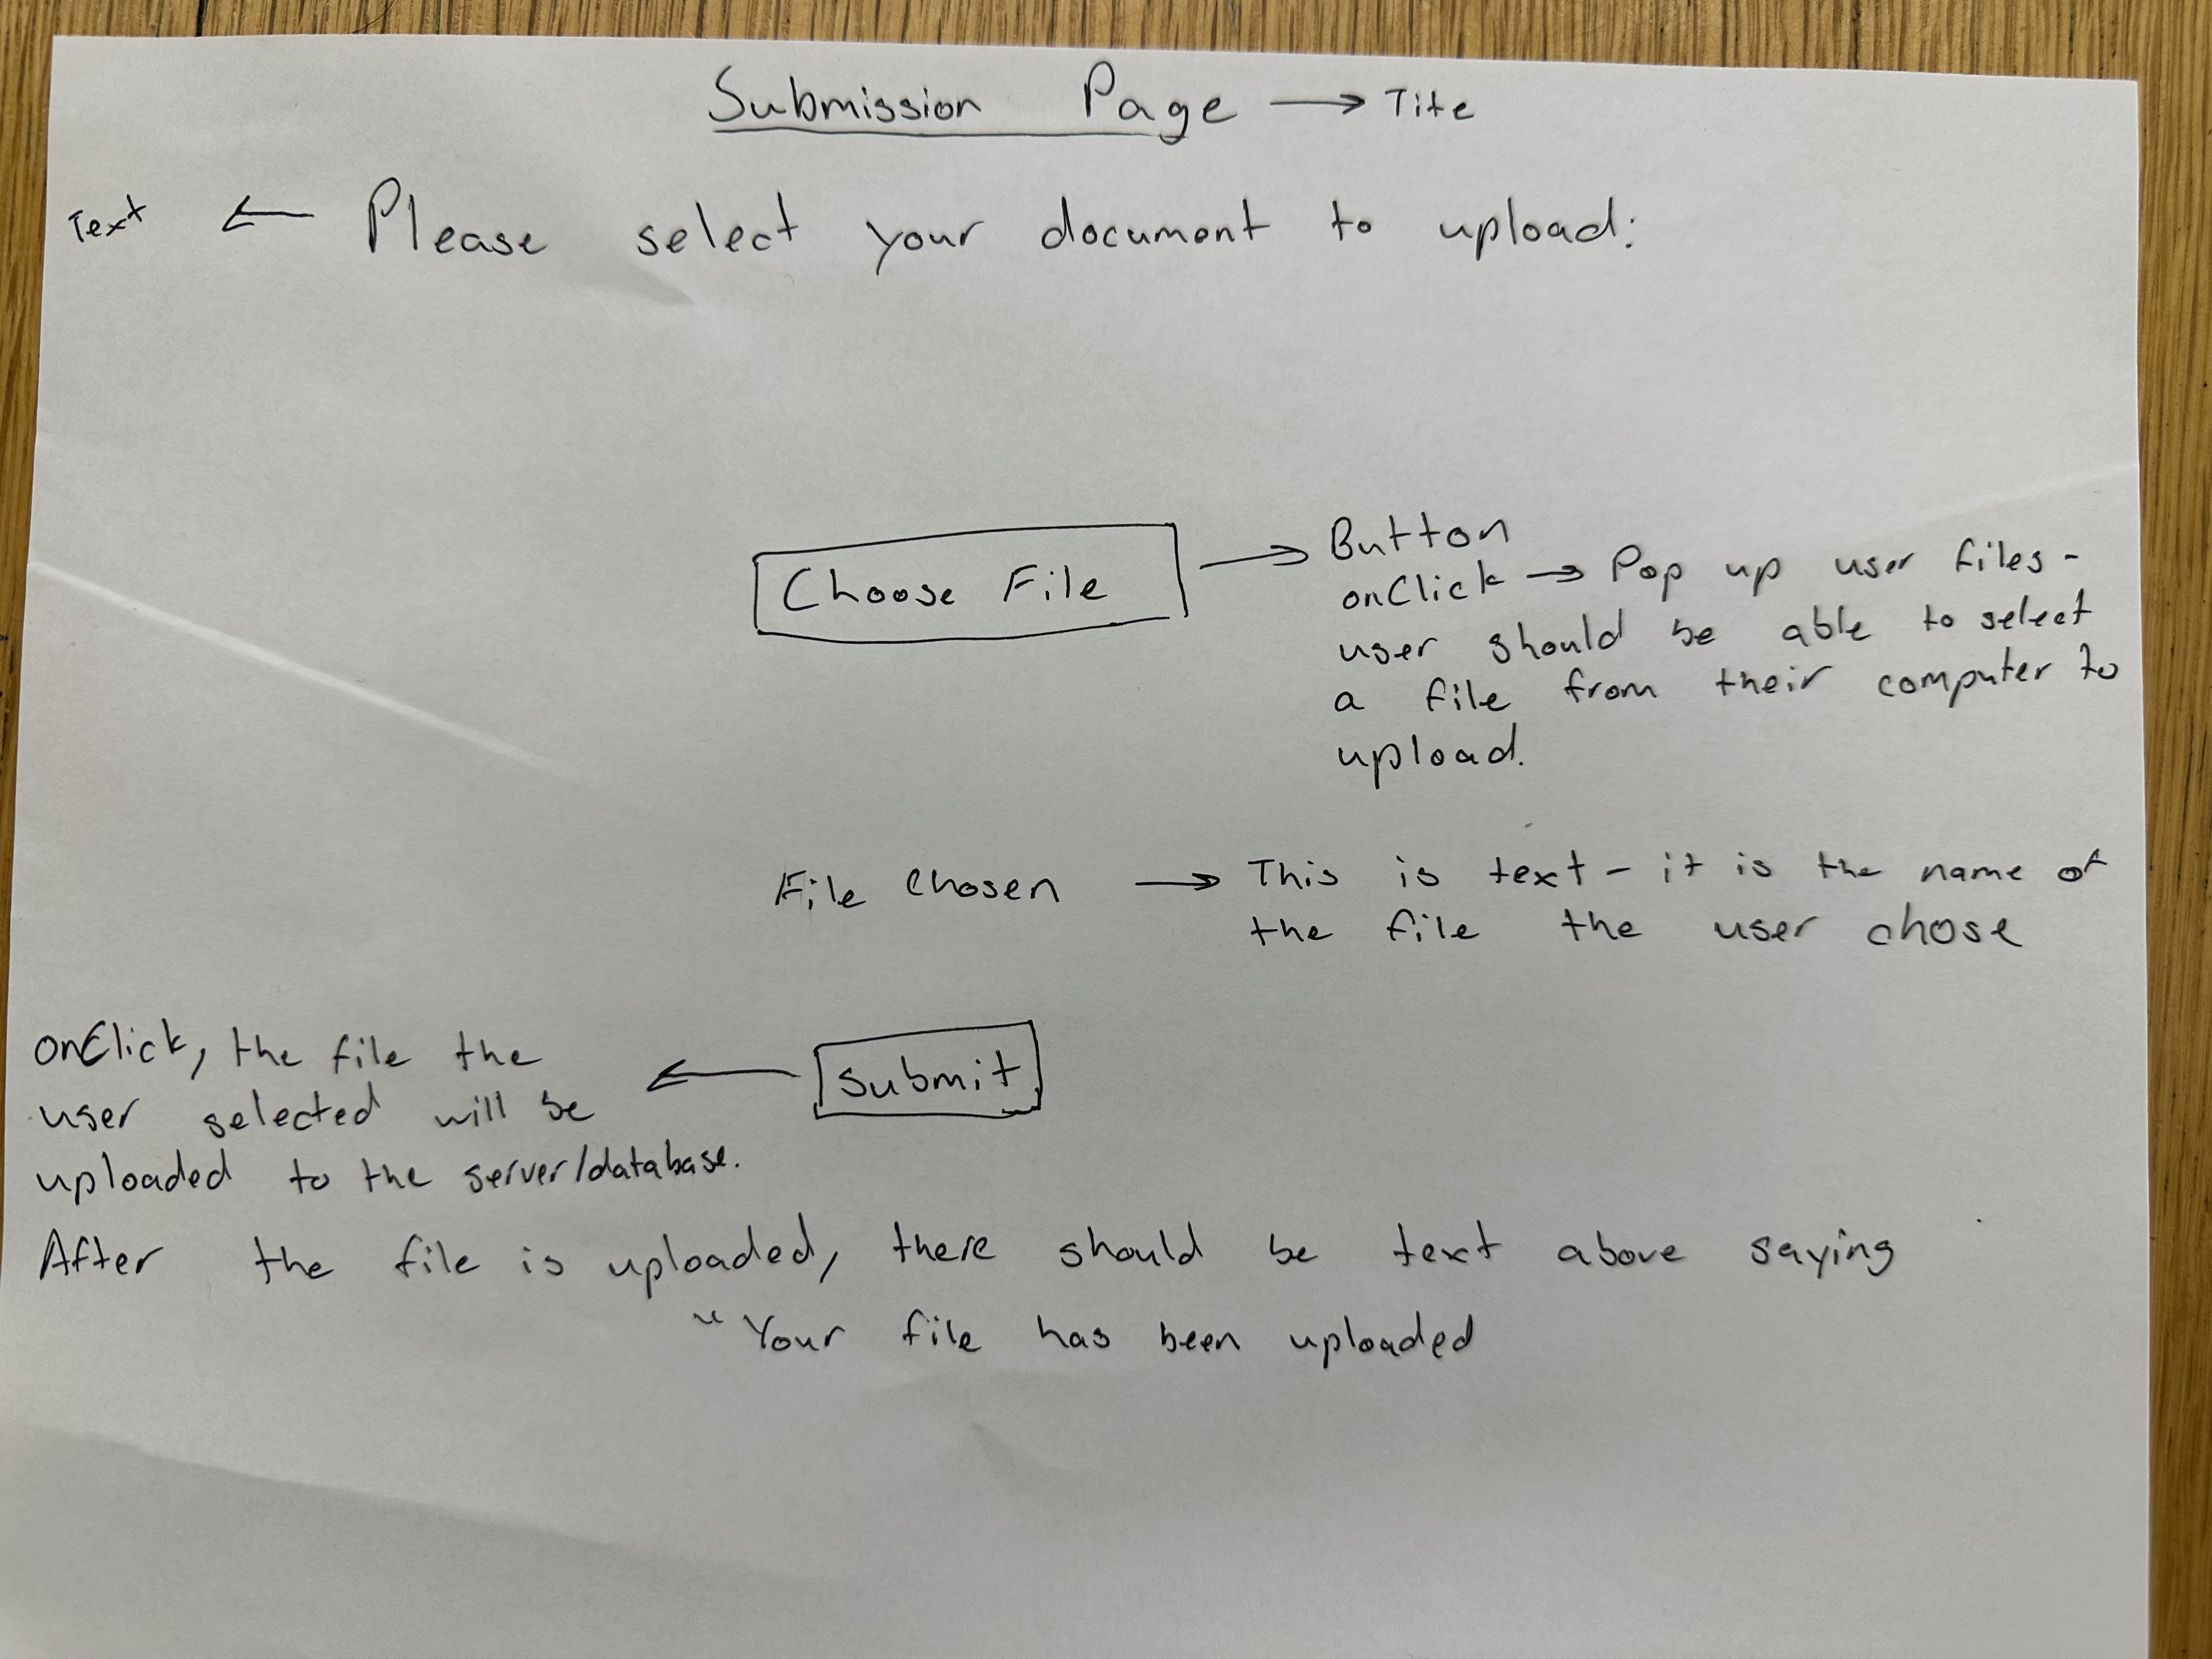 Submission Page → Title
Text ← Please select your document to upload:
Choose File → Button
onClick → Pop up user files -
user should be able to select
a file from their computer to
upload.
File chosen → This is text - it is the name of
the file the user chose
onClick, the file the
user selected will be ← Submit
uploaded to the server/database.
After the file is uploaded, there should be text above saying
" Your file has been uploaded